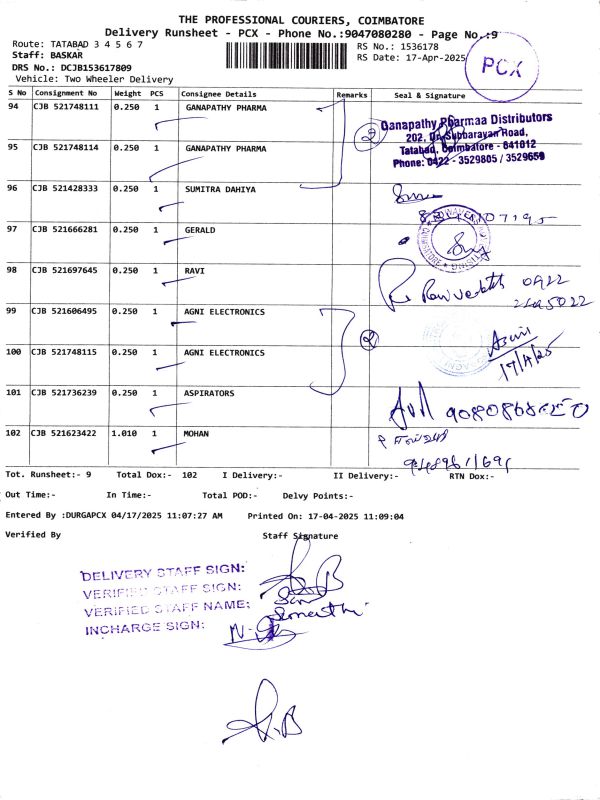 THE PROFESSIONAL COURIERS, COIMBATORE
Delivery Runsheet - PCX - Phone No.:9047080280 - Page No.:9
Route: TATABAD 3 4 5 6 7
RS No.: 1536178
Staff: BASKAR
RS Date: 17-Apr-2025
DRS No.: DCJB153617809
PCX
Vehicle: Two Wheeler Delivery
S No Consignment No Weight PCS Consignee Details Remarks Seal & Signature
94 CJB 521748111 0.250 1 GANAPATHY PHARMA
2
Ganapathy Pharmaa Distributors
202, Dr. Subbarayan Road,
Tatabad, Coimbatore - 641012
Phone: 0422 - 3529805 / 3529659
95 CJB 521748114 0.250 1 GANAPATHY PHARMA
96 CJB 521428333 0.250 1 SUMITRA DAHIYA
97 CJB 521666281 0.250 1 GERALD
98 CJB 521697645 0.250 1 RAVI
0422
99 CJB 521606495 0.250 1 AGNI ELECTRONICS
2
100 CJB 521748115 0.250 1 AGNI ELECTRONICS
17/4/25
101 CJB 521736239 0.250 1 ASPIRATORS
102 CJB 521623422 1.010 1 MOHAN
Tot. Runsheet:- 9 Total Dox:- 102 I Delivery:- II Delivery:- RTN Dox:-
Out Time:- In Time:- Total POD:- Delvy Points:-
Entered By :DURGAPCX 04/17/2025 11:07:27 AM Printed On: 17-04-2025 11:09:04
Verified By Staff Signature
DELIVERY STAFF SIGN:
VERIFIED STAFF SIGN:
VERIFIED STAFF NAME:
INCHARGE SIGN: